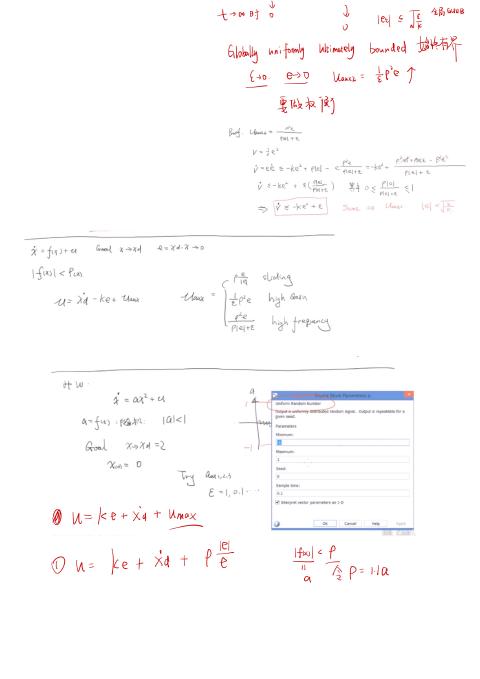 t→∞ 时 ↓ ↓ |e| ≤ √(ε/k)
0 0
Globally uniformly ultimately bounded 有界
ε→0 e→0 Umax = 1/ε ρ²e ↑
要做权衡
Proof. Umax = ρ²e / (ρ|e|+ε)
V = ½e²
V̇ = eė ≤ -ke² + ρ|e| - e ρ²e/(ρ|e|+ε) = -ke² +
V̇ ≤ -ke² + ε(ρ|e|/(ρ|e|+ε)) 其中 0 ≤ ρ|e|/(ρ|e|+ε) ≤ 1
⇒ V̇ ≤ -ke² + ε
ẋ = f(x) + u Goal x→xd e = xd-x→0
|f(x)| < ρ(x)
u = ẋd - ke + Umax
Umax = { ρ e/|e| sliding
1/ε ρ²e high Gain
ρ²e/(ρ|e|+ε) high frequency
ẋ = ax² + u
|a|<1
Goal x→xd = 2
x(0) = 0
a
1
-1
Try
ε = 1, 0.1 ...
Source Block Parameters
Uniform Random Number
Output a uniformly distributed random signal. Output is repeatable for a given seed.
Parameters
Minimum:
Maximum:
1
Seed:
0
Sample time:
0.1
Interpret vector parameters as 1-D
OK Cancel Help Apply
u = ke + ẋd + Umax
① u = ke + ẋd + ρ |e|/e
|f(x)| < ρ
a
ρ = 1.1a